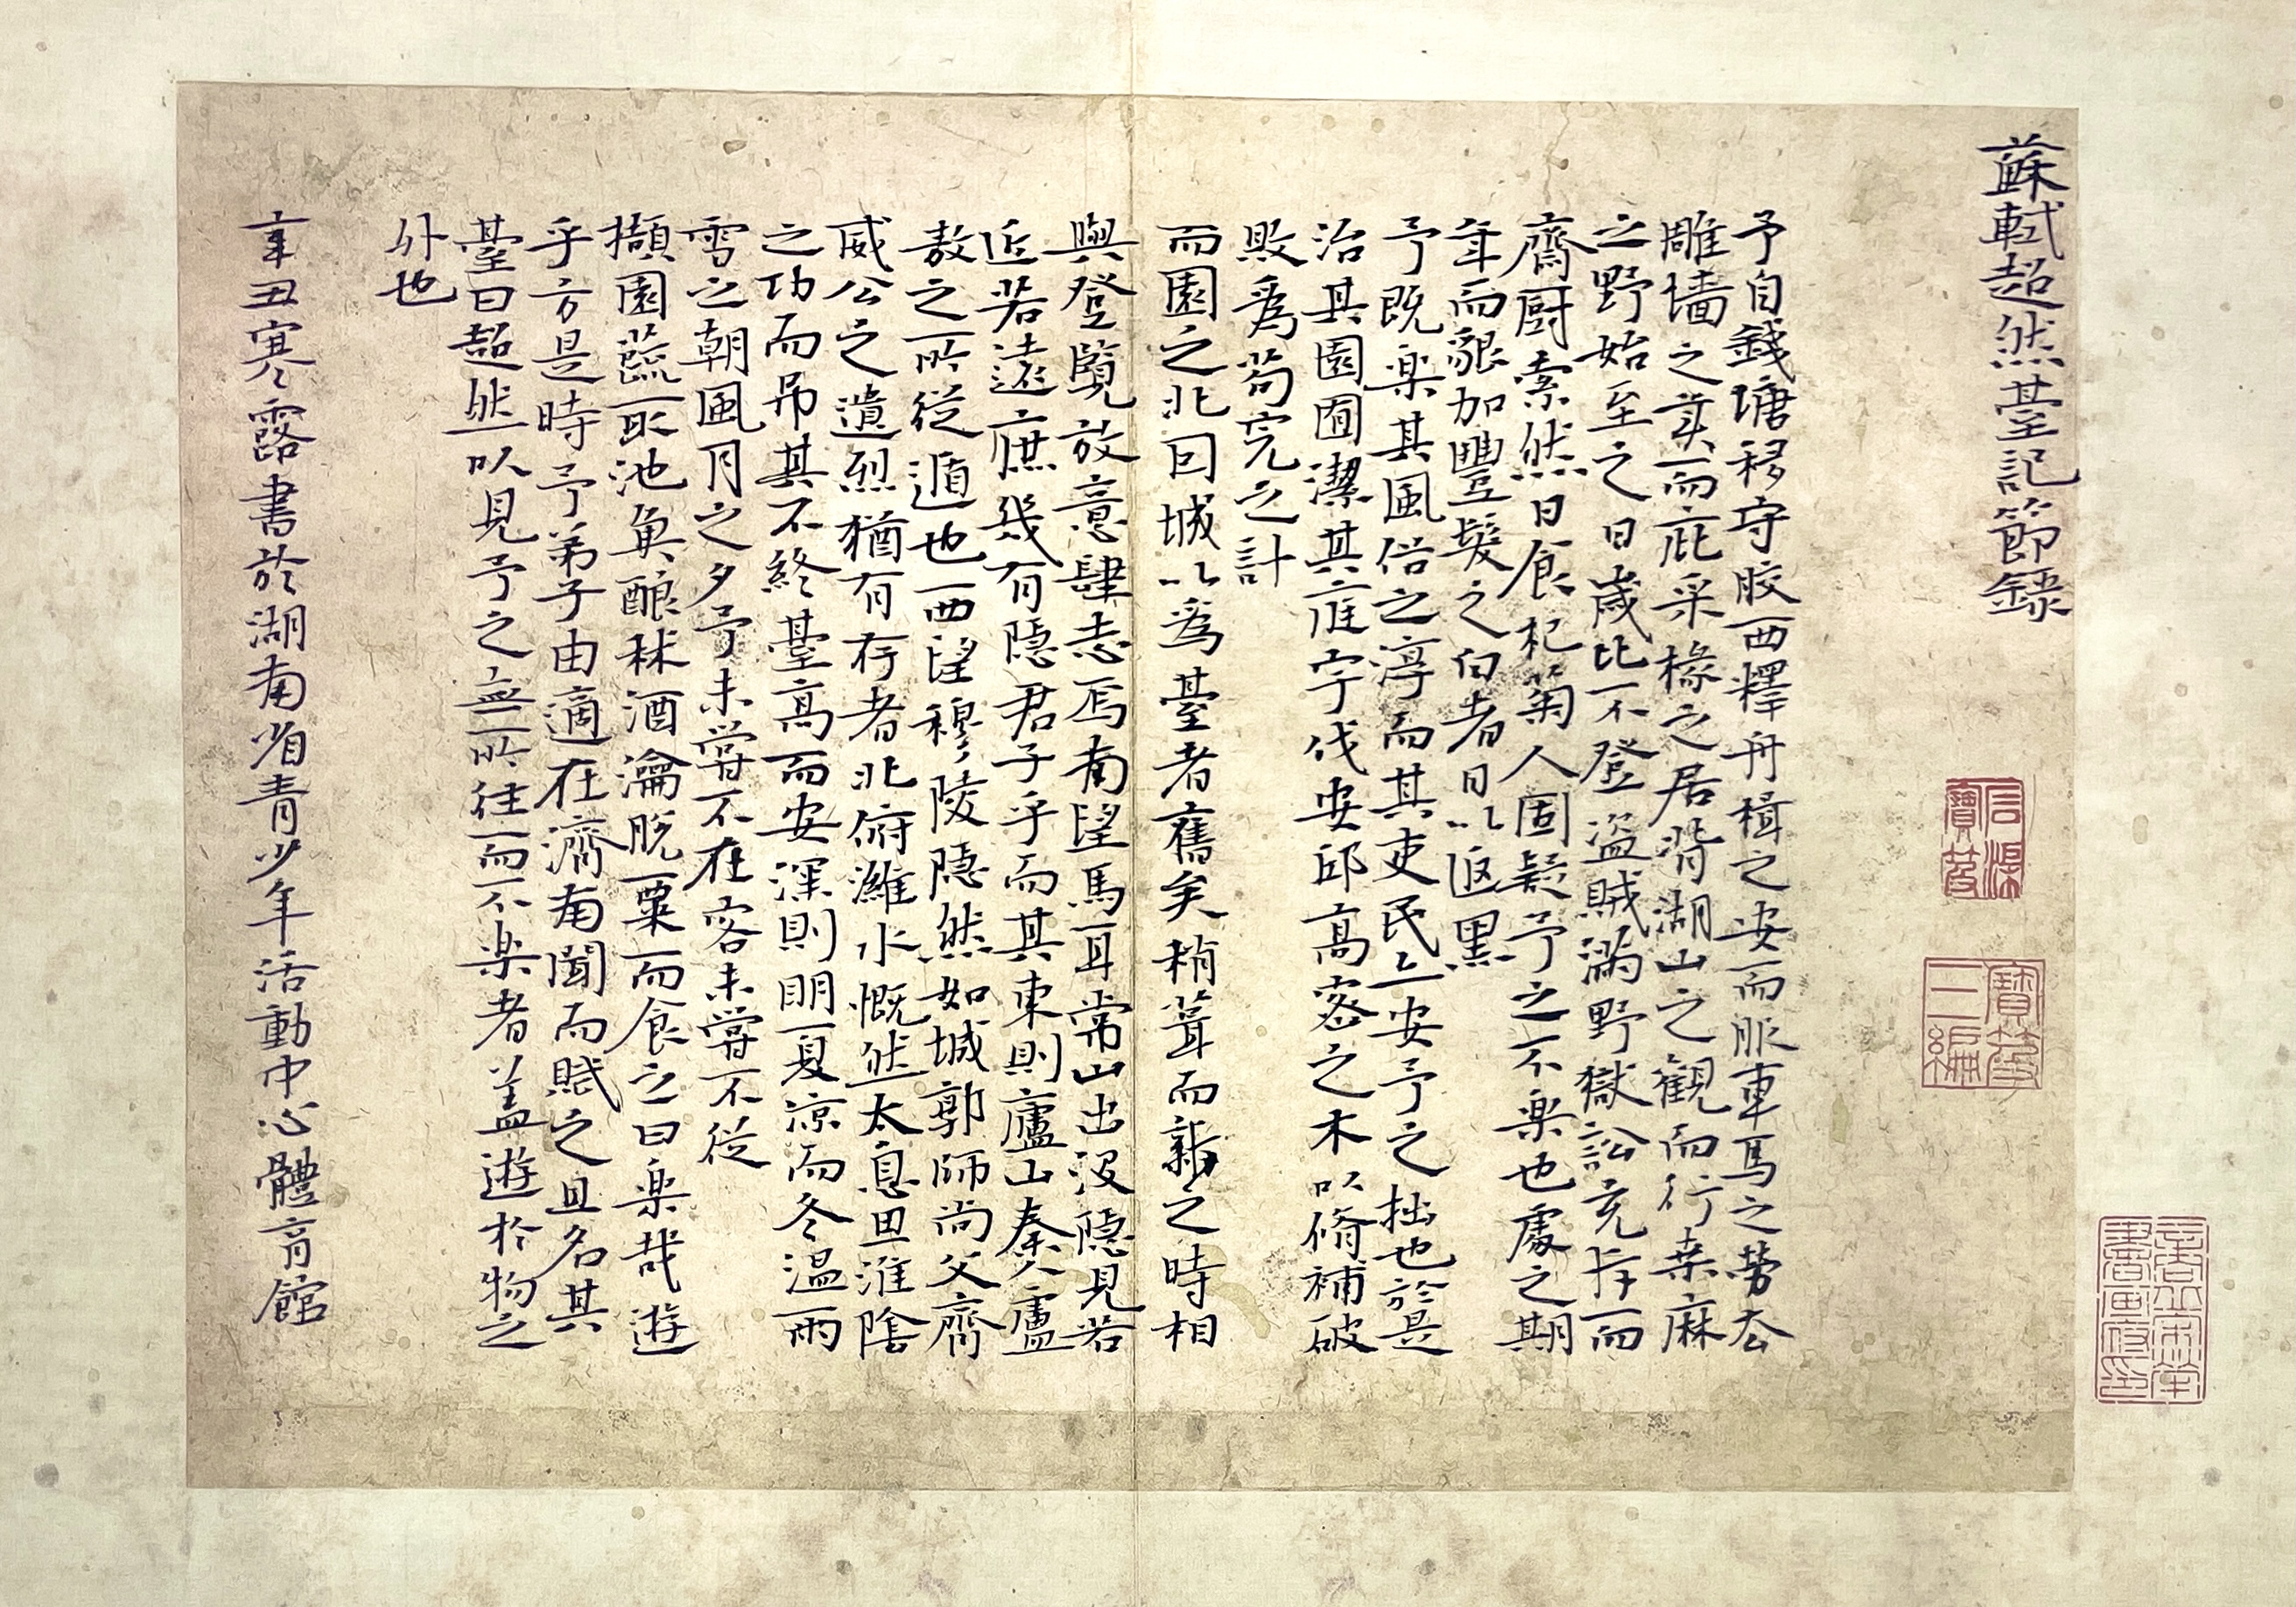 蘇軾超然臺記節錄
予自錢塘移守膠西釋舟楫之安而服車馬之勞去
雕墻之美而庇采椽之居背湖山之觀而行桑麻
之野始至之日歲比不登盜賊滿野獄訟充斥而
齋厨索然日食杞菊人固疑予之不樂也處之期
年而貌加豐髮之白者日以返黑
予既樂其風俗之淳而其吏民亦安予之拙也於是
治其園囿潔其庭宇伐安邱高密之木以脩補破
敗爲苟完之計
而園之北因城以爲臺者舊矣稍葺而新之時相
與登覽放意肆志焉南望馬耳常山出没隱見若
近若遠庶幾有隱君子乎而其東則廬山秦人盧
敖之所從遁也西望穆陵隱然如城郭師尚父齊
威公之遺烈猶有存者北俯濰水慨然太息思淮陰
之功而吊其不終臺高而安深則明夏凉而冬温雨
雪之朝風月之夕予未嘗不在客未嘗不從
擷園蔬取池魚釀秫酒瀹脫粟而食之曰樂哉遊
乎方是時予弟子由適在濟南聞而賦之且名其
臺曰超然以見予之無所往而不樂者盖遊於物之
外也
辛丑寒露書於湖南省青少年活動中心體育館
寶藝
二編